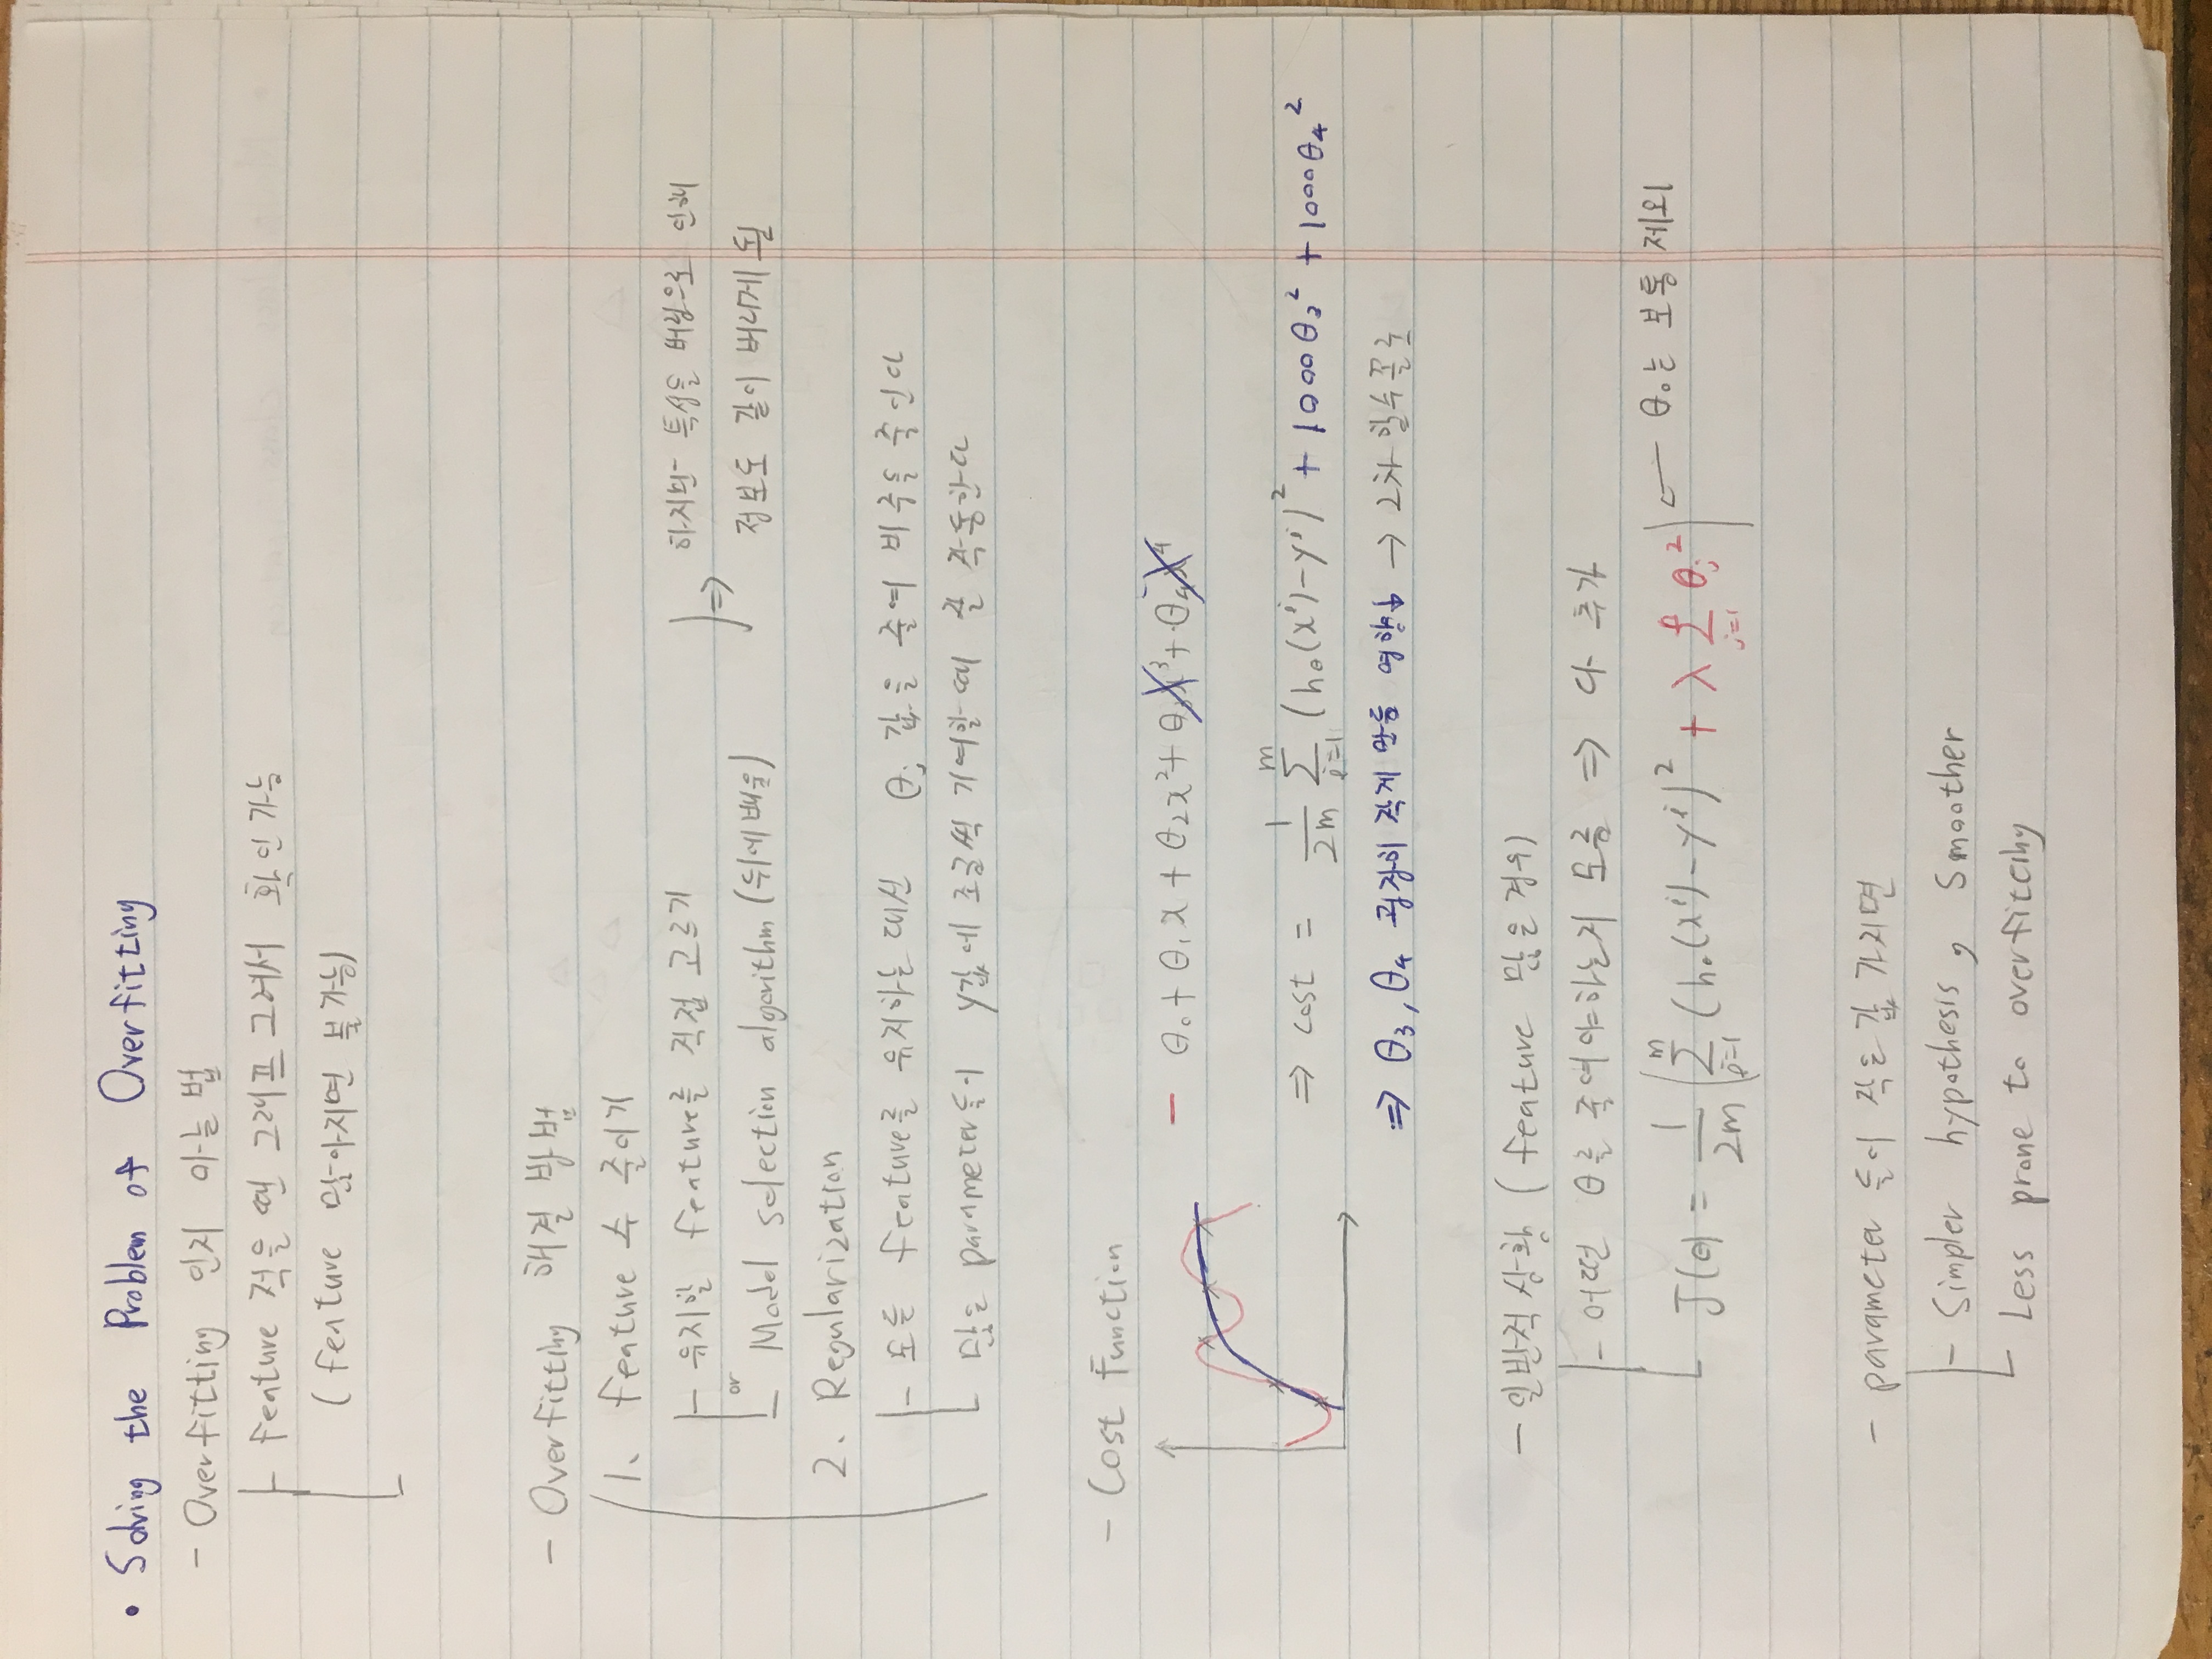 • Solving the Problem of Overfitting
- Overfitting 인지 아는법
- feature 적을 땐 그래프 그려서 확인가능
(feature 많아지면 불가능)
- Overfitting 해결 방법
1. feature 수 줄이기
- 유지할 feature를 직접 고르기
or
- Model selection algorithm (뒤에 배움)
⇒ 하지만 특성을 버림으로 인해
정보도 같이 버리게 됨
2. Regularization
- 모든 feature를 유지하는 대신 θj 값을 줄여 비중을 줄인다
- 많은 parameter들이 y값에 조금씩 기여할 때 잘 작동한다
- Cost Function
- θ₀ + θ₁x + θ₂x² + θ₃x³ + θ₄x⁴
⇒ cost = 1/2m Σ_{i=1}^{m} (hθ(xⁱ) - yⁱ)² + 1000θ₃² + 1000θ₄²
⇒ θ₃, θ₄ 굉장히 작게 만듦 영향↓ → 2차 함수꼴로
- 일반적 상황 (feature 많은 경우)
- 어떤 θ를 줄여야하는지 모름 ⇒ 다 추가
J(θ) = 1/2m [Σ_{i=1}^{m} (hθ(xⁱ) - yⁱ)² + λ Σ_{j=1} θj²] ← θ₀는 보통 제외
- parameter 들이 작은 값 가지면
- Simpler hypothesis, Smoother
- Less prone to overfitting